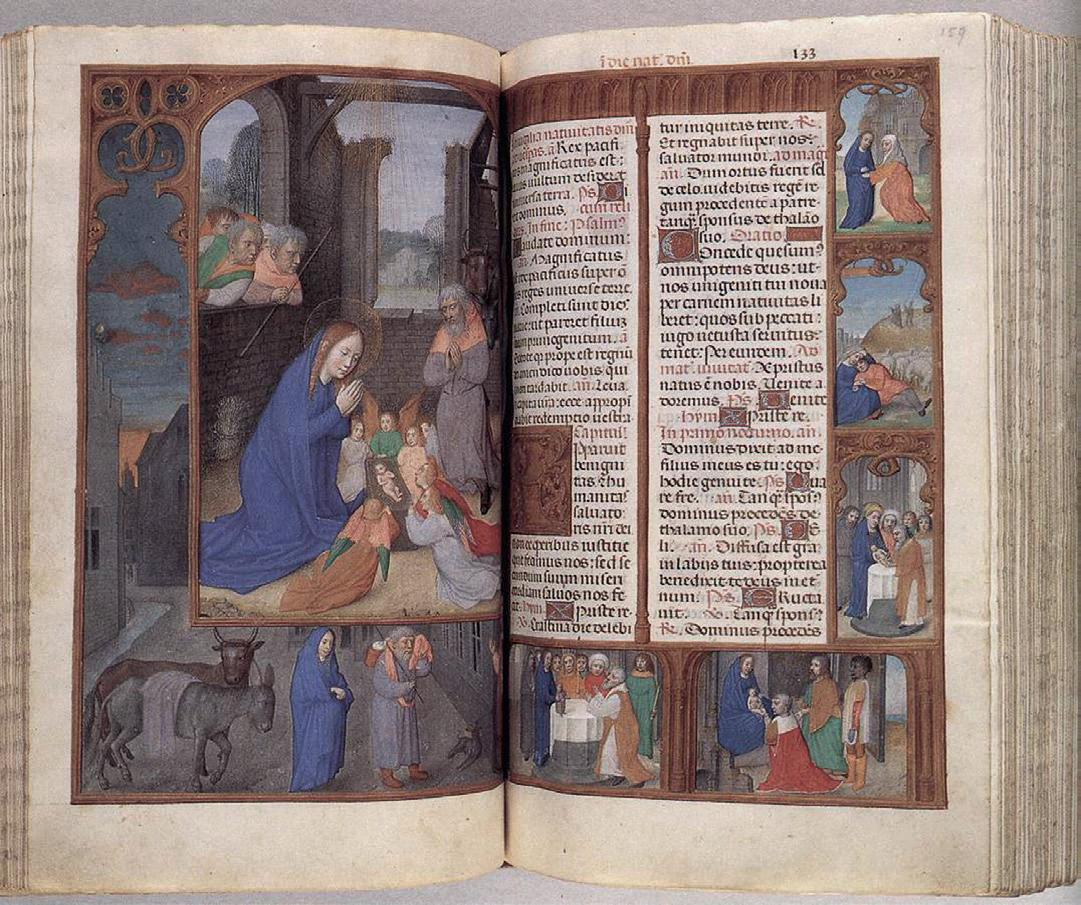 159
i die nat. dm̄. 133
vigilia natiuitatis dm̄
Rex pacifi
magnificatus est:
uultum desiderat
uersa terra. Ps. 
dominus.
In fine: Psalm⁹
audate dominum:
Magnificatus
rex pacificus super ō
reges uniuerse terre.
Completi sunt dies
ut pareret filiuz
suum primogenitum. a
prope est regnū
dico uobis, qui
non tardabit. an. Leua
capita ura: ecce appropī
redemptio uestra
Capitul̄
Apparuit
benigni
tas & hu
manitas
saluato
ris nr̄i dei
non ex operibus iusticie
que fecimus nos: sed se
cundum suam miseri
cordiam saluos nos fe
cit. hym. Xpriste re-
Crastina die delebi
tur iniquitas terre. R.
Et regnabit super nos:
saluator mundi. ad mag
an. Dum ortus fuerit sol
de celo. uidebitis regē re
gum procedentē a patre
tanq̄ sponsus de thalāo
suo. Oratio
Concede quesum⁹
omnipotens deus: ut-
nos unigeniti tui noua
per carnem natiuitas li
beret: quos sub peccati
iugo uetusta seruitus-
tenet: Per eundem. Ad
mat. inuitat. Xpristus
natus ē nobis. Uenite a
doremus. Ps. Uenite
hym. Xpriste re.
In primo nocturno. an.
Dominus dixit ad me-
filius meus es tu: ego.
hodie genui te. Ps. Qua
re fre. an. Tanq̄ spōs⁹
dominus procedēs de-
thalamo suo. Ps. Ce
li. an. Diffusa est gra
in labijs tuis: propterea
benedixit te deus in et
num. Ps. Eructa
uit. Tanq̄ spons⁹
R. Dominus procedēs